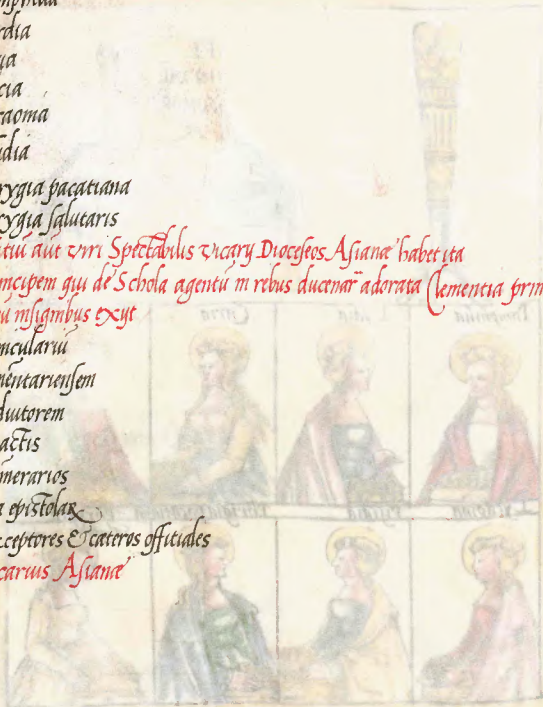 rdia
cia
caoma
idia
rygia pacatiana
rygia salutaris
utiu aut viri Spectabilis vicarij Dioceseos Asianae habet ita
incipem qui de Schola agentu in rebus ducenar adorata Clementia prin
u insignibus exijt
niculariu
mentariensem
diutorem
actis
merarios
a epistolar
ceptores & cateros offitiales
carius Asianae